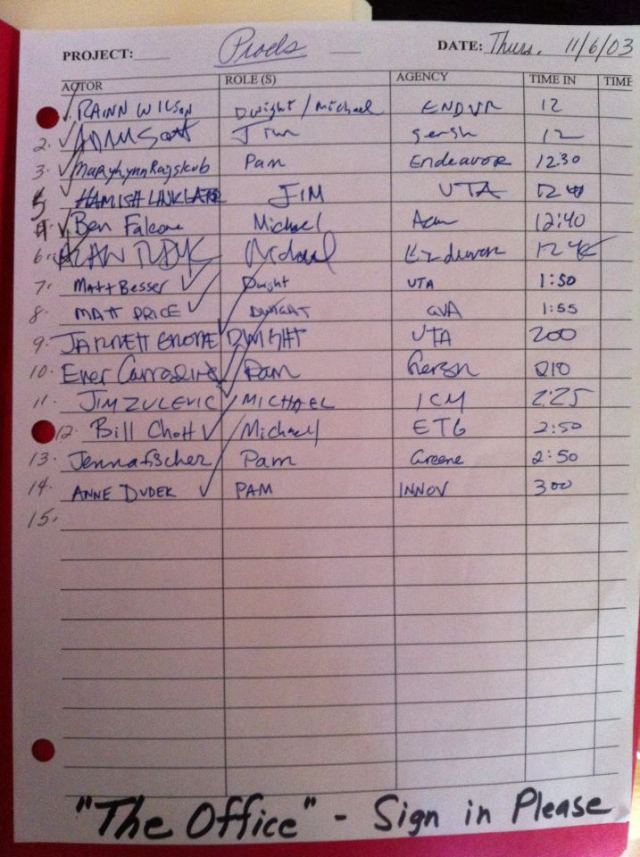 PROJECT: DATE: Thurs. 11/6/03
ACTOR ROLE (S) AGENCY TIME IN TIME
RAINN WILSON Dwight / Michael ENDVR 12
2. ADAM SCOTT Jim gersh 12
3. MaryLynn Rajskub Pam Endeavor 12:30
5 HAMISH LINKLATER JIM UTA
4. Ben Falcone Michael 12:40
6. ALAN TUDYK Michael Endeavor
7. Matt Besser Dwight UTA 1:50
8. MATT PRICE DWIGHT 1:55
9. DWIGHT UTA 200
10. Ever Carradine Pam Gersh 210
11. JIM ZULEVIC MICHAEL ICM 2:25
12. Bill Chott Michael ETG 2:50
13. Jenna Fischer Pam Greene 2:50
14. ANNE DUDEK PAM INNOV 300
15.
"The Office" - Sign in Please